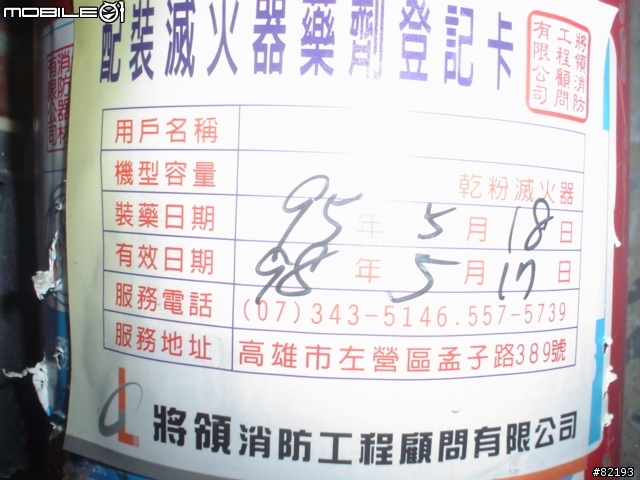 MOBILE01
配裝滅火器藥劑登記卡
將領消防
工程顧問
有限公司
消防器材
有限公司
用戶名稱
機型容量 乾粉滅火器
裝藥日期 95年5月18日
有效日期 98年5月17日
服務電話 (07)343-5146.557-5739
服務地址 高雄市左營區孟子路389號
將領消防工程顧問有限公司
#82193